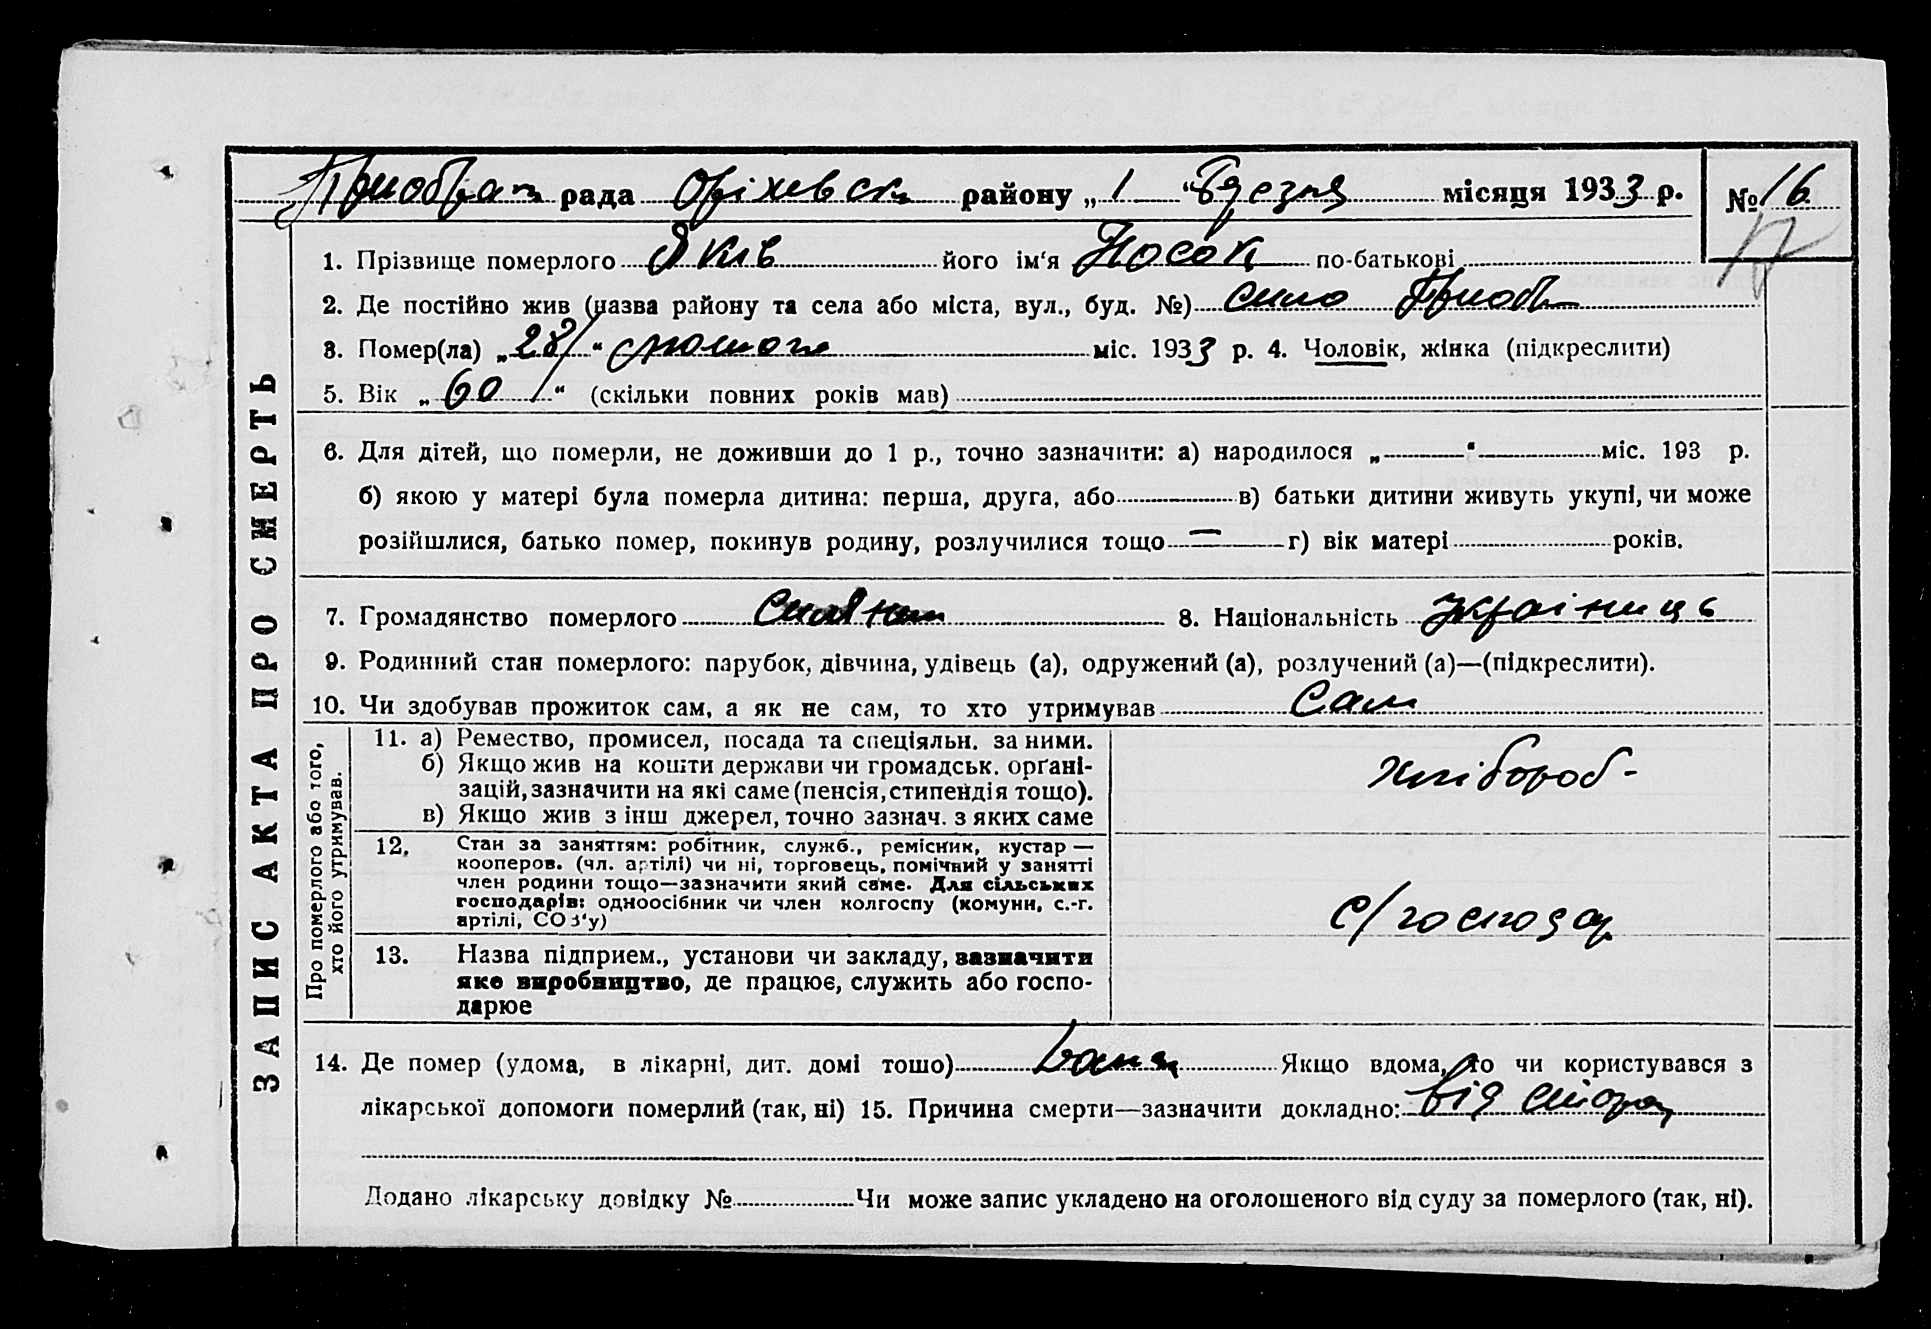 рада Оріхевськ району „1“ березня місяця 1933 р. № 16
17
ЗАПИС АКТА ПРО СМЕРТЬ
1. Прізвище померлого Яків його ім‘я Носок по-батькові
2. Де постійно жив (назва району та села або міста, вул., буд. №) село
3. Помер(ла) „28“ лютого міс. 1933 р. 4. Чоловік, жінка (підкреслити)
5. Вік „60“ (скільки повних років мав)
6. Для дітей, що померли, не доживши до 1 р., точно зазначити: а) народилося „ “ міс. 193 р.
б) якою у матері була померла дитина: перша, друга, або в) батьки дитини живуть укупі, чи може
розійшлися, батько помер, покинув родину, розлучилися тощо — г) вік матері років.
7. Громадянство померлого 8. Національність Україниць
9. Родинний стан померлого: парубок, дівчина, удівець (а), одружений (а), розлучений (а)—(підкреслити).
10. Чи здобував прожиток сам, а як не сам, то хто утримував Сам
Про померлого або того,
хто його утримував.
11. а) Ремество, промисел, посада та спеціяльн. за ними.
б) Якщо жив на кошти держави чи громадськ. орґані-
зацій, зазначити на які саме (пенсія, стипендія тощо).
в) Якщо жив з інш джерел, точно зазнач. з яких саме
хлібороб-
12. Стан за заняттям: робітник, служб., ремісник, кустар —
кооперов. (чл. артілі) чи ні, торговець, помічний у занятті
член родини тощо—зазначити який саме. Для сільських
господарів: одноосібник чи член колгоспу (комуни, с.-г.
артілі, СОЗ‘у)
с/господар
13. Назва підприєм., установи чи закладу, зазначити
яке виробництво, де працює, служить або госпо-
дарює
14. Де помер (удома, в лікарні, дит. домі тошо) Якщо вдома, то чи користувався з
лікарської допомоги померлий (так, ні) 15. Причина смерти—зазначити докладно: від
Додано лікарську довідку № Чи може запис укладено на оголошеного від суду за померлого (так, ні).